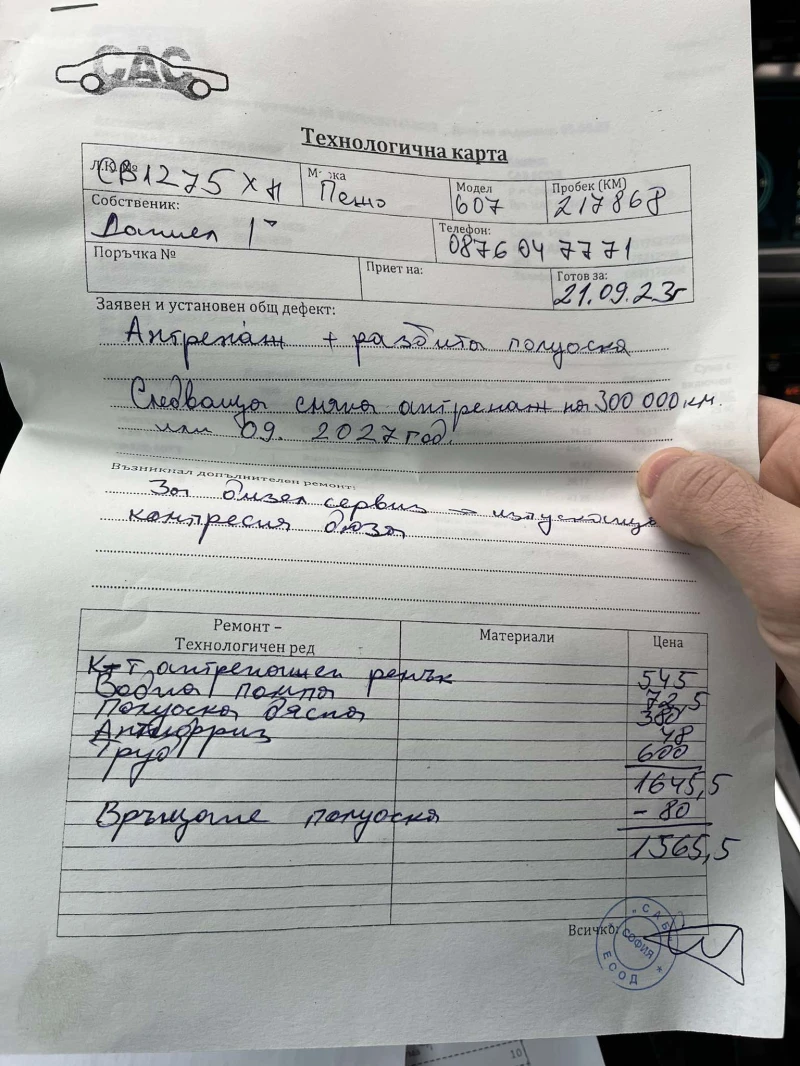 САС
Технологична карта
СВ1275ХН Пежо 607 217868
Модел Пробег (КМ)
Собственик: Телефон:
Даниел 0876 04 7771
Поръчка № Приет на: Готов за:
21.09.23г
Заявен и установен общ дефект:
Антренаж + разбита полуоска
Следваща смяна антренаж на 300 000 км.
или 09. 2027 год.
Възникнал допълнителен ремонт:
За дизел сервиз – изпускаща
компресия дюза
Ремонт – Материали Цена
Технологичен ред
К-т антренашен ремък 545
Водна помпа 72,5
Полуоска дясна 380
Антифриз 48
Труд 600
1645,5
Връщане полуоска - 80
1565,5
Всичко:
СОФИЯ
ЕООД